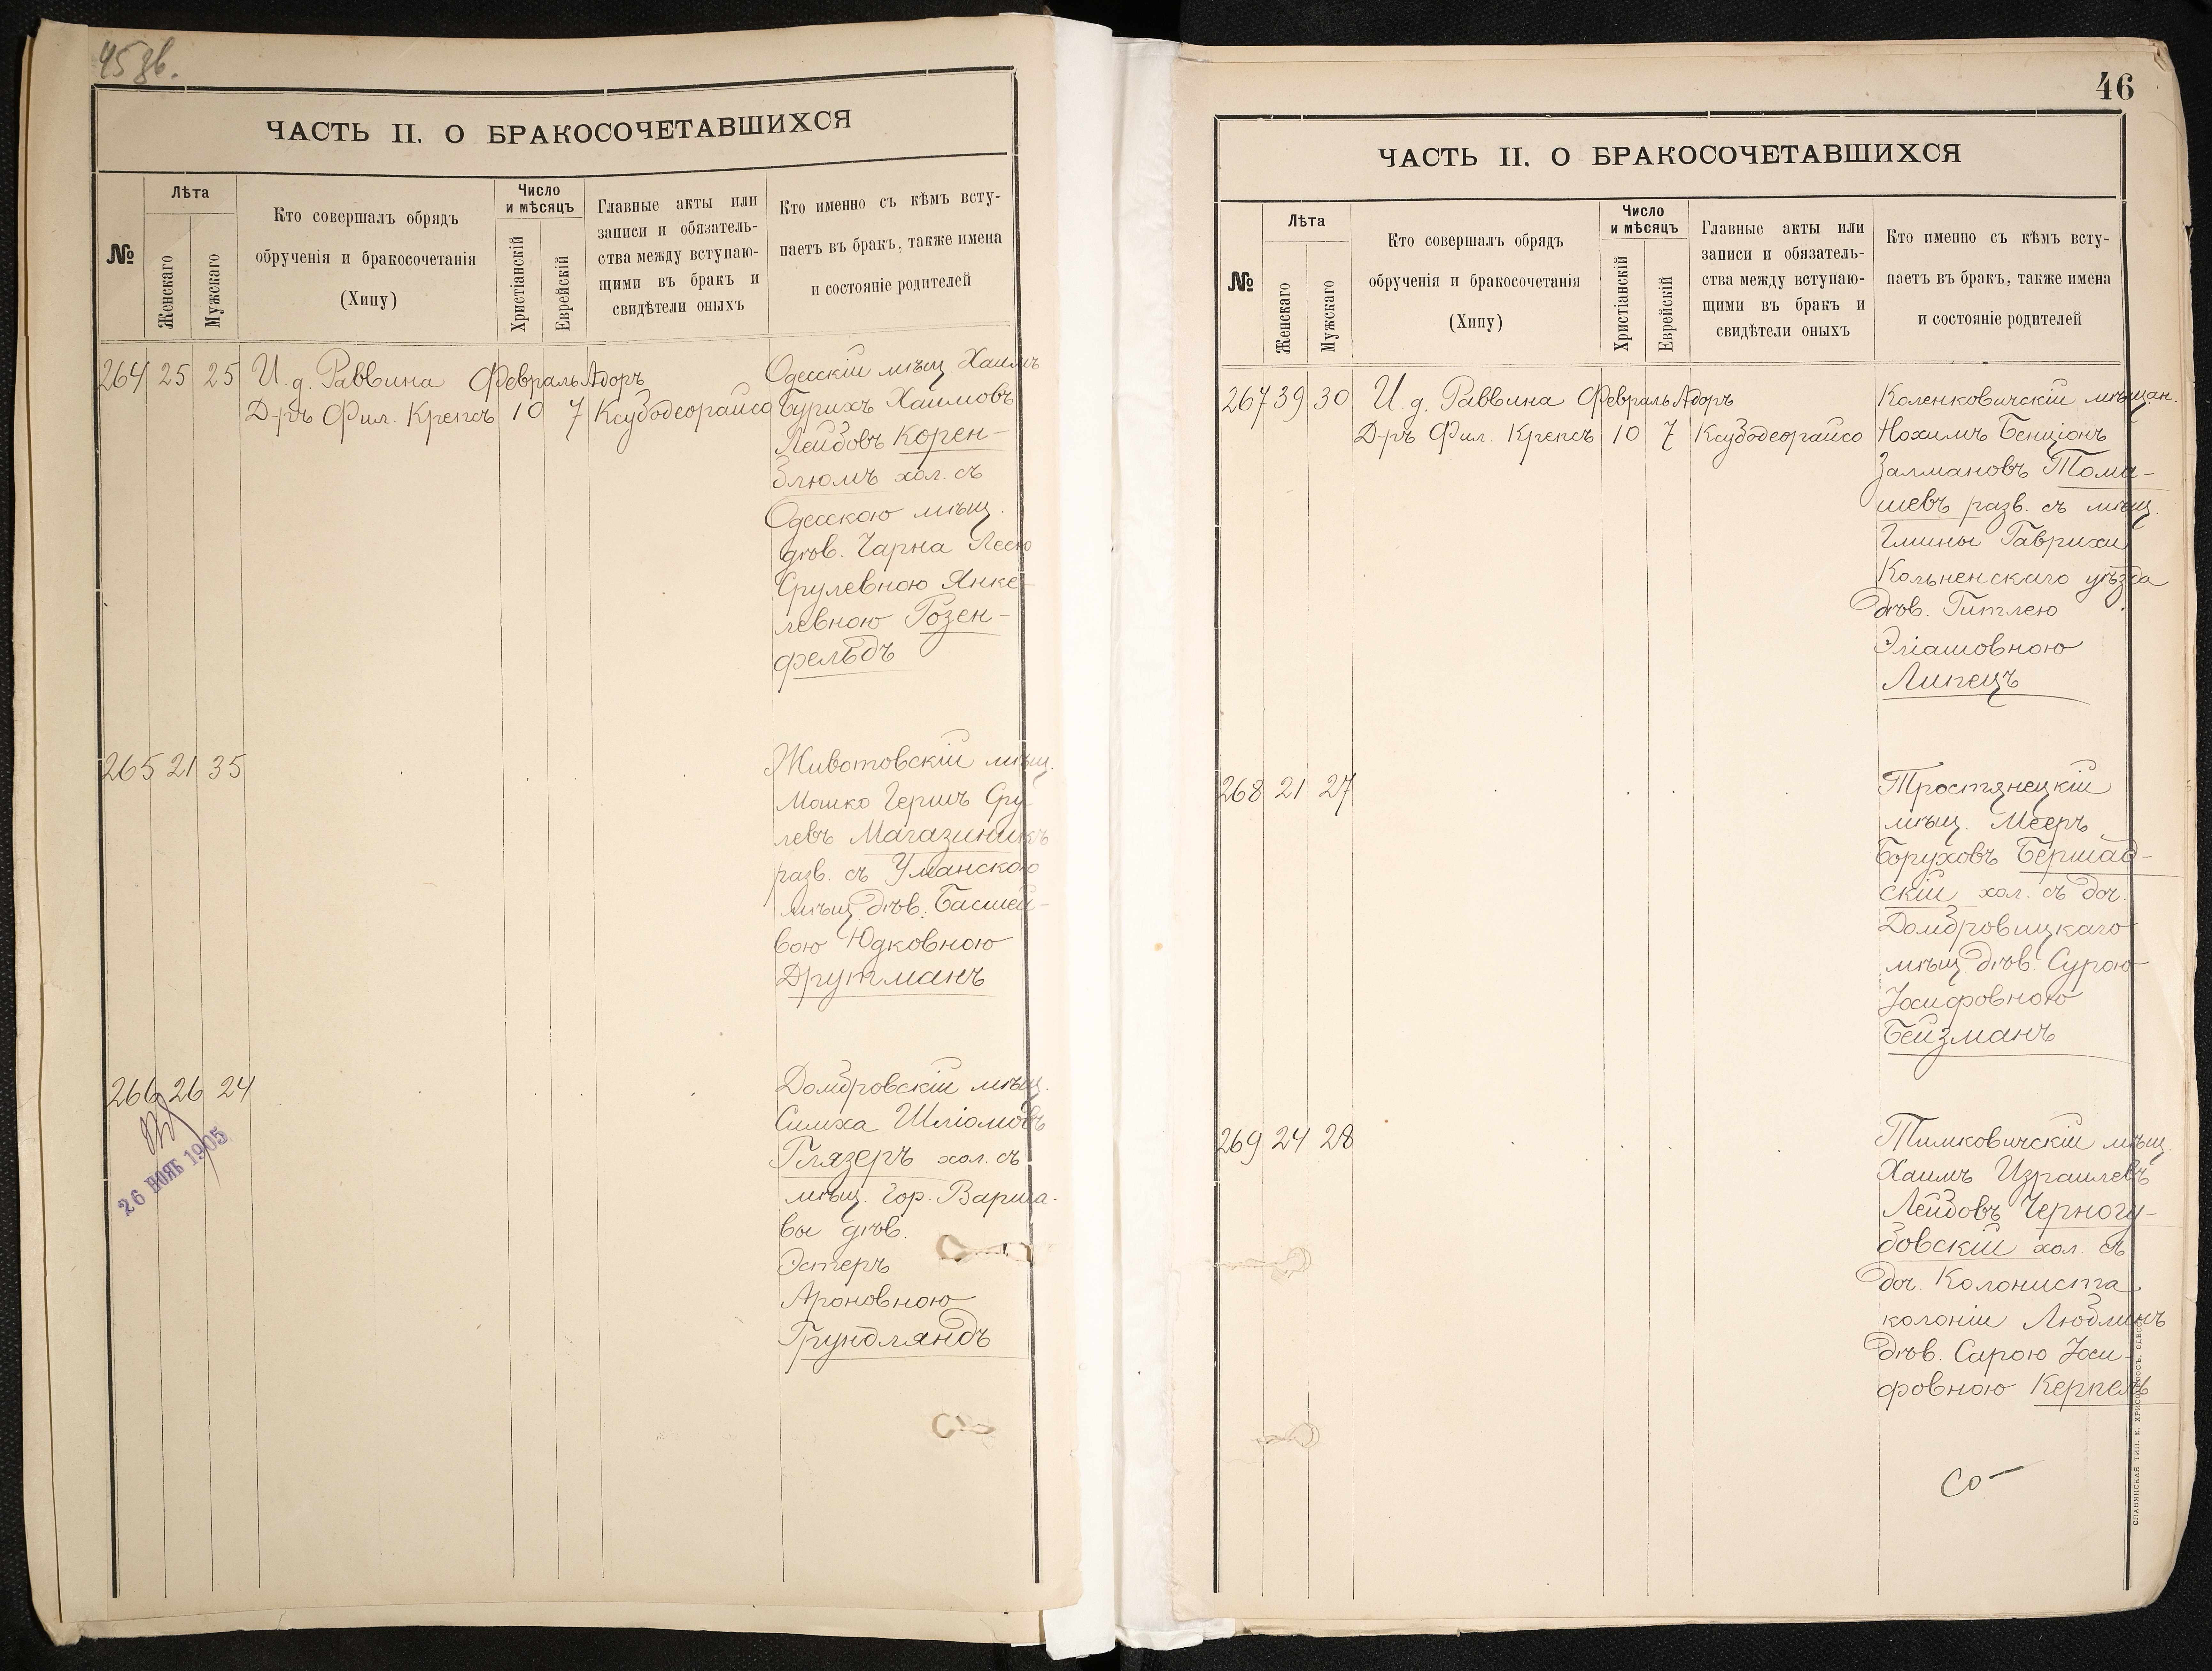 45 зв.
ЧАСТЬ II. О БРАКОСОЧЕТАВШИХСЯ
№
Лѣта
Женскаго
Мужскаго
Кто совершалъ обрядъ
обрученія и бракосочетанія
(Хипу)
Число
и мѣсяцъ
Христіанскій
Еврейскій
Главные акты или
записи и обязатель-
ства между вступаю-
щими въ бракъ и
свидѣтели оныхъ
Кто именно съ кѣмъ всту-
паетъ въ бракъ, также имена
и состояніе родителей
264 25 25 И. д. Раввина Февраль Адоръ
Д-ръ Фил. Крепсъ 10 7 Ксубодеорайсо
Одесскій мѣщ. Хаимъ
Бурихъ Хаимовъ
Лейбовъ Корен-
блюмъ хол. съ
Одесскою мѣщ.
дѣв. Чарна Леею
Срулевною Янке-
левною Розен-
фельдъ
265 21 35
Животовскій мѣщ.
Мошко Гершъ Сру
левъ Магазиникъ
разв. съ Уманскою
мѣщ. дѣв. Басшей-
вою Юдковною
Друтманъ
266 26 24
26 НОЯБ 1905
Домбровскій мѣщ.
Симха Шліомовъ
Глязеръ хол. съ
мѣщ. гор. Варша-
вы дѣв.
Эстеръ
Ароновною
Грундляндъ
46
ЧАСТЬ II. О БРАКОСОЧЕТАВШИХСЯ
№
Лѣта
Женскаго
Мужскаго
Кто совершалъ обрядъ
обрученія и бракосочетанія
(Хипу)
Число
и мѣсяцъ
Христіанскій
Еврейскій
Главные акты или
записи и обязатель-
ства между вступаю-
щими въ бракъ и
свидѣтели оныхъ
Кто именно съ кѣмъ всту-
паетъ въ бракъ, также имена
и состояніе родителей
267 39 30 И. д. Раввина Февраль Адоръ
Д-ръ Фил. Крепсъ 10 7 Ксубодеорайсо
Коленковичскій мѣщан.
Нохимъ Бенціонъ
Залмановъ Тома-
шевъ разв. съ мѣщ.
Гмины Гаврихи
Кольненскаго уѣзда
дѣв. Гитлею
Эліашовною
Липецъ
268 21 27
Тростянецкій
мѣщ. Мееръ
Боруховъ Бершад-
скій хол. съ доч.
Домбровицкаго
мѣщ. дѣв. Сурою
Іосифовною
Бейзманъ
269 24 28
Тимковичскій мѣщ.
Хаимъ Израилевъ
Лейбовъ Черногу-
бовскій хол. съ
доч. Колониста
колоніи Любминъ
дѣв. Сарою Іоси-
фовною Керпель
СЛАВЯНСКАЯ ТИП. Е. ХРИСОГЕЛОСЪ, ОДЕССА